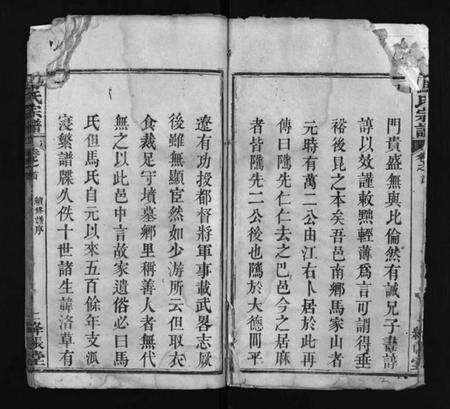 氏宗譜 卷之首
門貴盛無與比倫然有誡兄子書諄
諄以效謹敕黙輕薄爲言可謂得垂
裕後昆之本矣吾邑南鄉馬家山者
元時有萬二公由江右卜居於此再
傳曰隲先仁仁去之巴邑今之居麻
者皆隲先二公後也隲於大德間平
遼有功授都督將軍事載武畧志厥
後雖無顯宦然如少游所云但取衣
食裁足守墳墓鄉里稱善人者無代
無之以此邑中言故家遺俗必曰馬
氏但馬氏自元以來五百餘年支派
寖蘩譜牒久佚十世諸生諱洛草有
氏宗譜 卷之首 續修譜序 絳帳堂